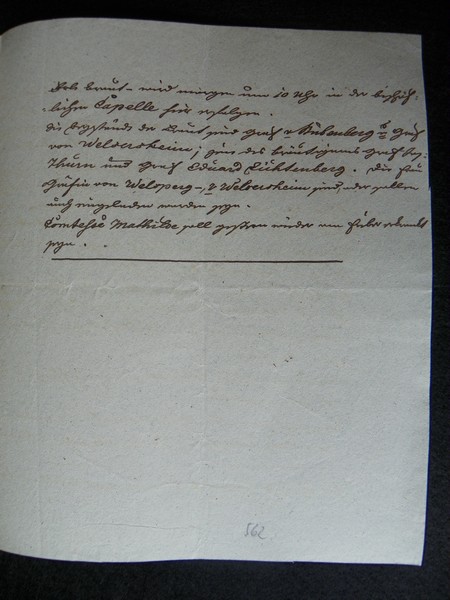 wird morgen um 10 Uhr in der bischöf-
lichen Capelle hier erfolgen.
die Beystände der Braut sind Graf v Stubenberg & Graf
von Welsersheim; jene des Bräutigams Graf
Thurn und Graf Eduard Lichtenberg. Die
Gräfin von Welsperg- & Welsersheim sind, oder sollen
auch eingeladen worden seyn.
Comtesse Mathilde soll gestern wieder am Fieber erkrankt
seyn.
562